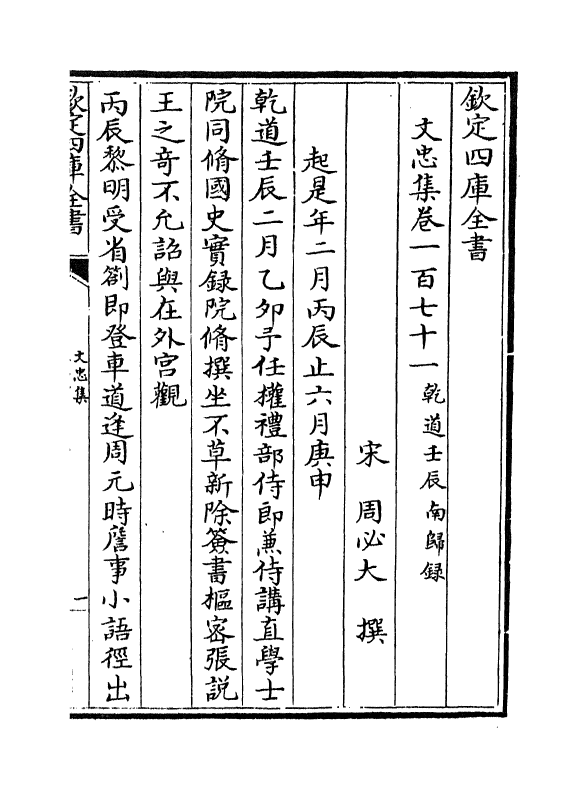 欽定四庫全書
文忠集卷一百七十一 乾道壬辰南歸録
宋 周必大 撰
起是年二月丙辰止六月庚申
乾道壬辰二月乙夘予任權禮部侍郎兼侍講直學士
院同脩國史實録院脩撰坐不草新除簽書樞密張説
王之竒不允詔與在外宫觀
丙辰黎明受省劄即登車道逢周元時詹事小語徑出
欽定四庫全書
文忠集
一